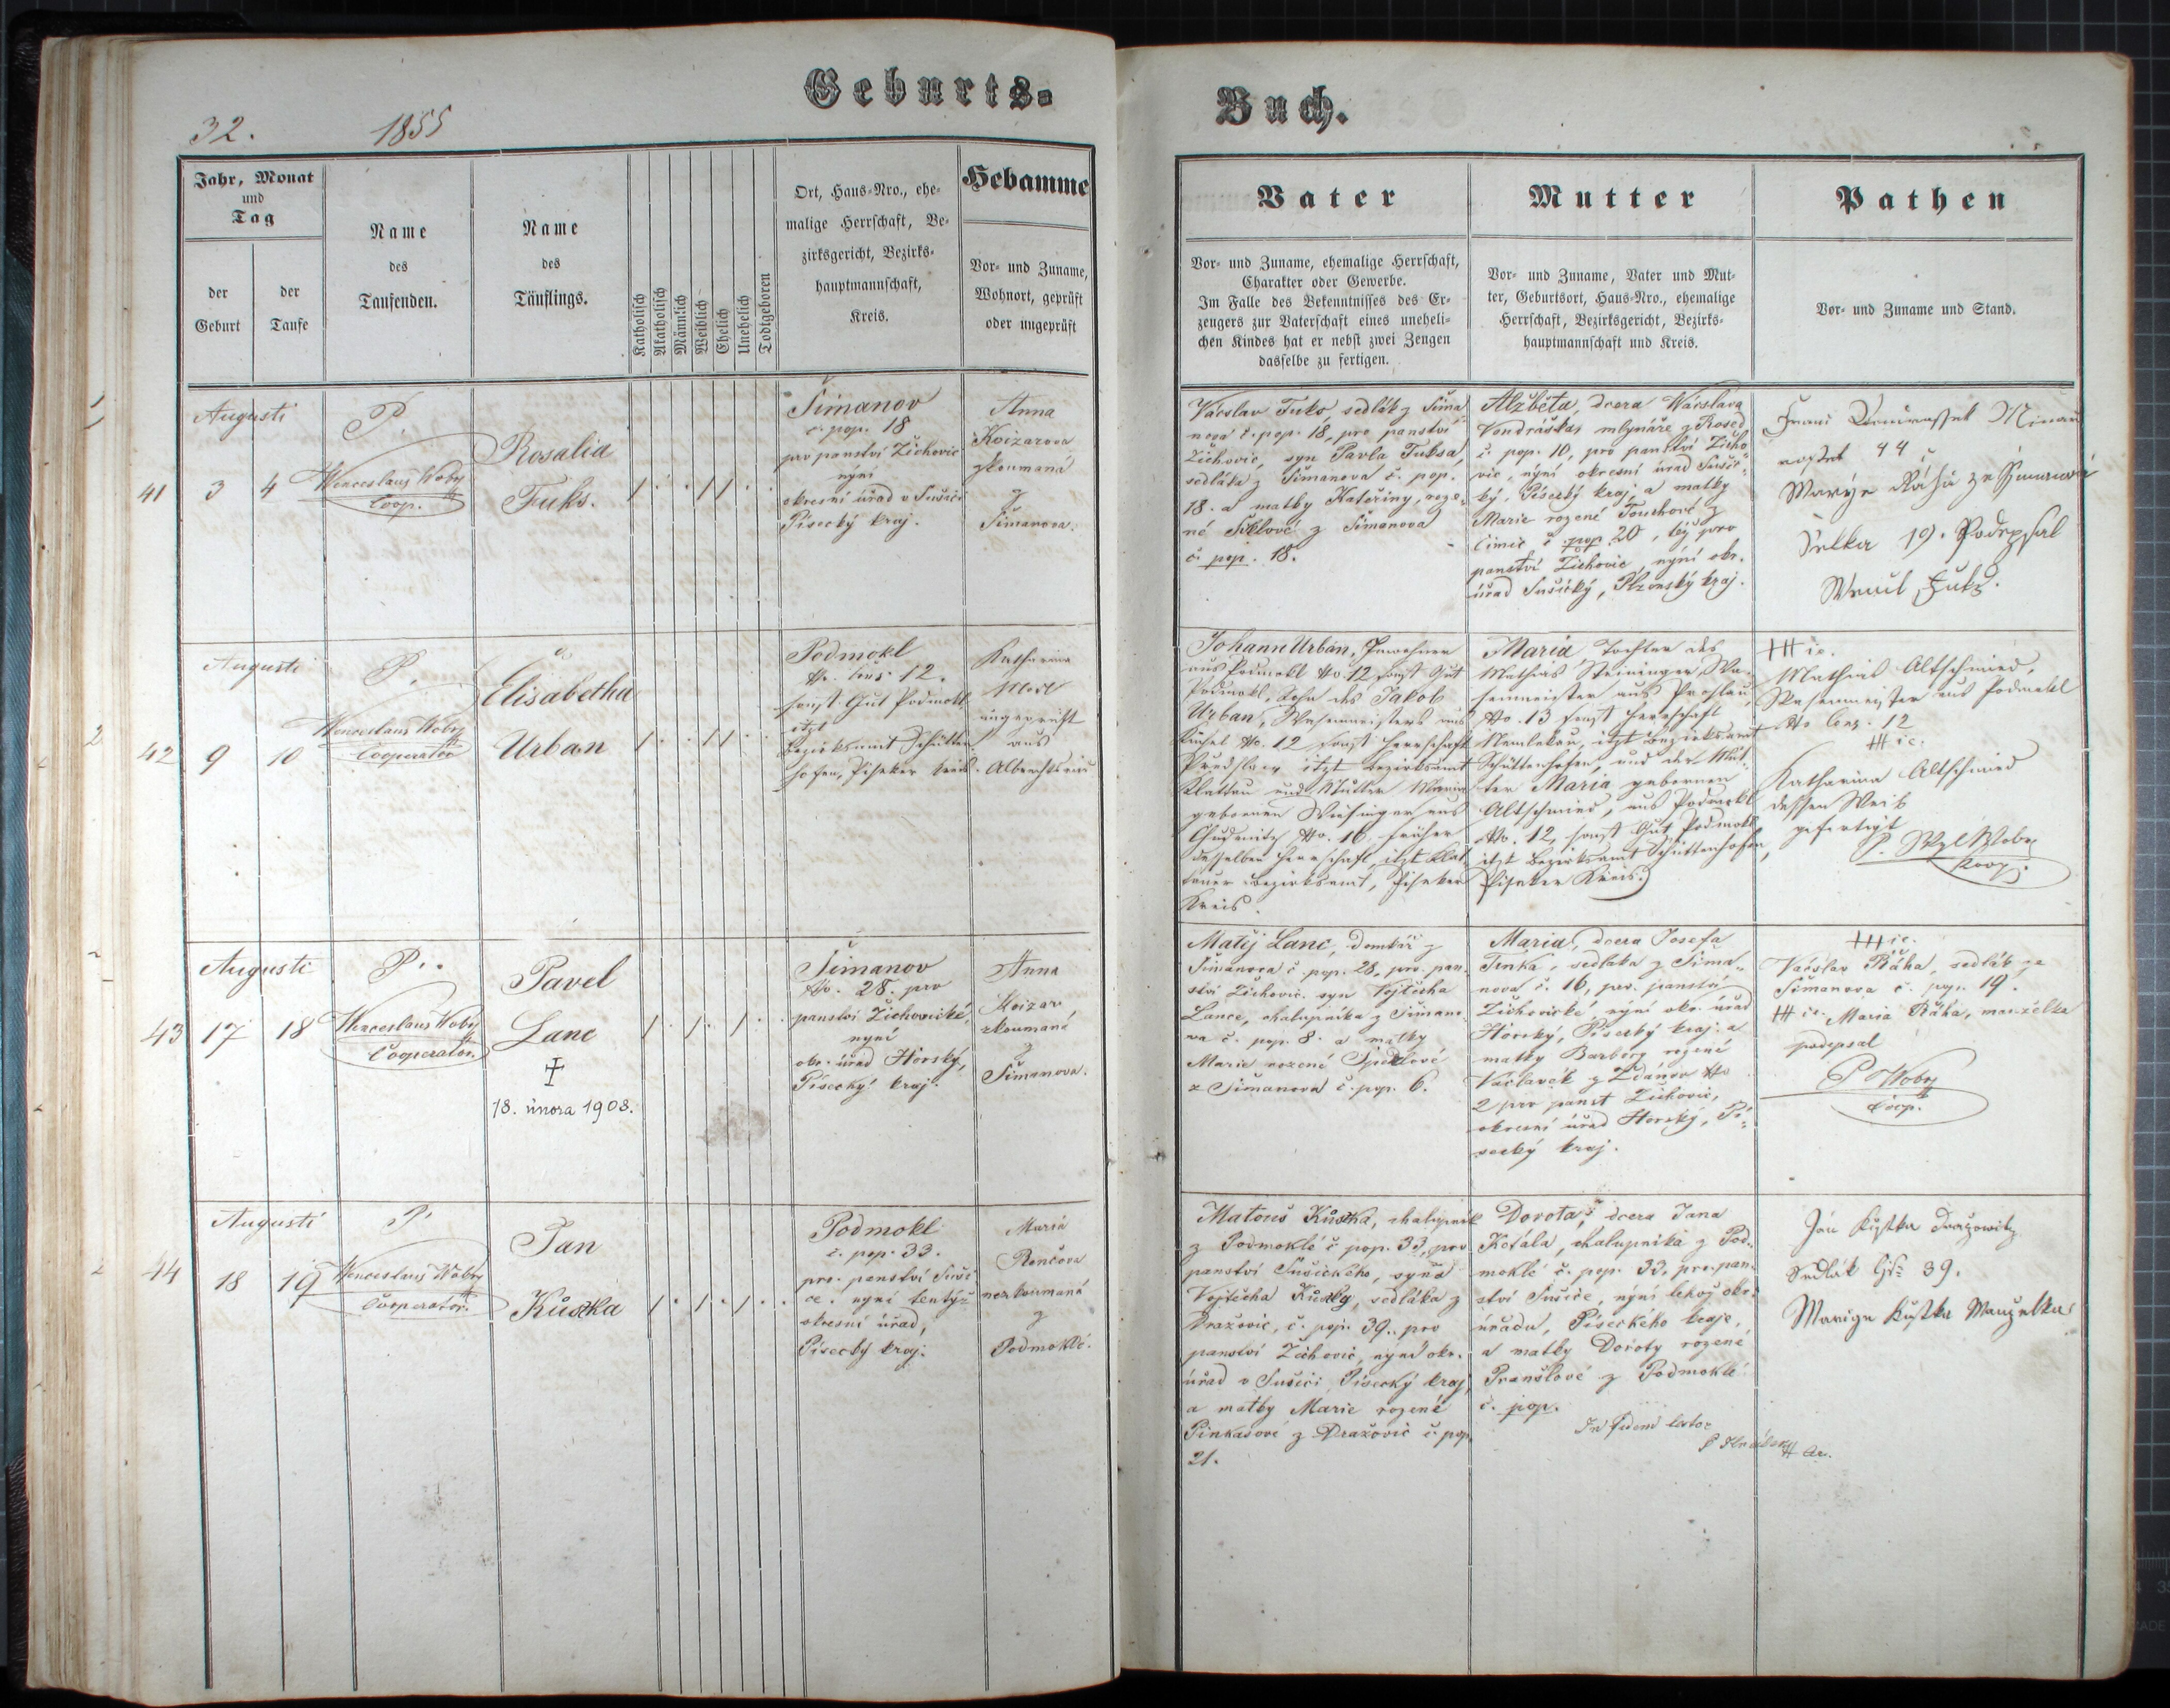 Geburts-
Buch.
32.
1855
Jahr, Monat
und
Tag
der
Geburt
der
Taufe
Name
des
Taufenden.
Name
des
Täuflings.
Katholisch
Akatholisch
Männlich
Weiblich
Ehelich
Unehelich
Todtgeboren
Ort, Haus-Nro., ehe-
malige Herrschaft, Be-
zirksgericht, Bezirks-
hauptmannschaft,
Kreis.
Hebamme
Vor- und Zuname,
Wohnort, geprüft
oder ungeprüft
Vater
Vor- und Zuname, ehemalige Herrschaft,
Charakter oder Gewerbe.
Im Falle des Bekenntnisses des Er-
zeugers zur Vaterschaft eines uneheli-
chen Kindes hat er nebst zwei Zeugen
dasselbe zu fertigen.
Mutter
Vor- und Zuname, Vater und Mut-
ter, Geburtsort, Haus-Nro., ehemalige
Herrschaft, Bezirksgericht, Bezirks-
hauptmannschaft und Kreis.
Pathen
Vor- und Zuname und Stand.
41
Augusti
3 4
P.
Wenceslaus Wobry
Coop.
Rosalia
Fuks.
Šimanov
č. pop. 18
pro panství Žichovic
nyní
okresní úřad v Sušici
Písecký kraj.
Anna
zkoumaná
z
Šimanova.
Václav Fuks, sedlák z Šima
nova č. pop. 18, pro panství
Žichovic, syn Pavla Fuksa,
sedláka z Šimanova č. pop.
18. a matky Kateřiny, roze-
né z Šimanova
č. pop. 18.
Alžběta, dcera Wácslava
Vondráška, mlynáře z Rosed
č. pop. 10, pro panství Žicho
vic, nýní okresní úřad Sušic-
ký, Písecký kraj, a matky
Marie rozené Touchové z
Čimic č. pop. 20, též pro
panství Žichovic, nýní okr.
úřad Sušický, Plzenský kraj.
44
Marye Ráha ze Ssimanova
19. Podepsal
Wencl Fuks.
42
Augusti
9 10
P.
Wenceslaus Wobry
Cooperator
Elisabetha
Urban
Podmokl
No. 12.
sonst Gut Podmokl
itzt
Bezirksamt Schütten-
hofen, Piseker Kreis.
Katharina
ungeprüft
aus
Johann Urban, Inwohner
aus Podmokl No. 12 sonst Gut
Podmokl, Sohn des Jakob
Urban, Wasenmeisters aus
No. 12 sonst Herrschaft
itzt Bezirksamt
Klattau und Mutter Maria
gebornen aus
No. 16. früher
derselben Herrschaft, itzt Klat
tauer Bezirksamt, Piseker
Kreis.
Maria Tochter des
Mathias Steininger, Wa-
senmeister aus
No. 13 sonst Herrschaft
itzt Bezirksamt
Schüttenhofen, und der Mut-
ter Maria gebornen
Altschmied, aus Podmokl
No. 12, sonst Gut Podmokl
itzt Bezirksamt Schüttenhofen,
Piseker Kreis.
Mathias Altschmied,
Wasenmeister aus Podmokl
No 12
Katharina Altschmied
dessen Weib
gefertigt
43
Augusti
17 18
P.
Wenceslaus Wobry
Cooperator.
Pavel
Lanc
18. února 1908.
Šimanov
No. 28. pro
panství Žichovické,
nyní
okr. úřad Horský,
Písecký kraj.
Anna
zkoumaná
z
Šimanova.
Matěj Lanc, domkář z
Šimanova č. pop. 28, pro pan-
ství Žichovic. syn Vojtěcha
Lance, chalupníka z Šimano
va č. pop. 8. a matky
Marie rozené
z Šimanova č. pop. 6.
Maria, dcera Josefa
Tinka, sedláka z Šima-
nova č. 16, pro panství
Žichovické, nýní okr. úřad
Horský, Písecký kraj. a
matky Barbory rozené
Václavek z Ždánov No
2 pro panst Žichovic,
okresní úřad Horský, Pí-
secký kraj.
Václav Ráha, sedlák ze
Šimanova č. pop. 19.
Maria Ráha, manželka
podepsal
P Wobry
Coop.
44
Augusti
18 19
P.
Wenceslaus Wobry
Cooperator.
Jan
Kůstka
Podmokl
č. pop. 33.
pro. panství Suši
ce. nyní tentýž
okresní úřad,
Písecký kraj.
Maria
nezkoumaná
z
Podmoklé.
Matouš Kůstka, chalupník
z Podmoklé č pop. 33, pro
panství Sušického, syna
Vojtěcha Kůstky, sedláka z
Dražovic, č. pop. 39. pro
panství Žichovic, nýní okr.
úřad v Sušici, Písecký kraj,
a matky Marie rozené
z Dražovic č. pop.
21.
Dorota, dcera Jana
chalupníka z Pod-
moklé č. pop. 33. pro. pan-
ství Sušice, nýní téhož okr.
úřadu, Píseckého kraje,
a matky Doroty rozené
z Podmoklé
č. pop.
Jan Kustka
Sedlák 39.
Marige Kustka Manzelka